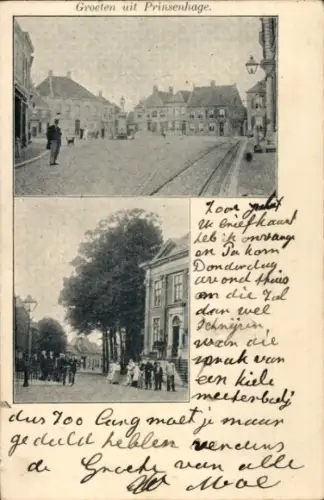 Groeten uit Prinsenhage.
Zoo juist
Uw Briefkaart
heb ik onvange
en Pa kom
Donderdag
avond thuis
en die Zal
dan wel
Schrijven
van die
zaak van
een kiele
dus Zoo Lang moet je maar
geduld hebben verders
de Groete van alle
W Mol